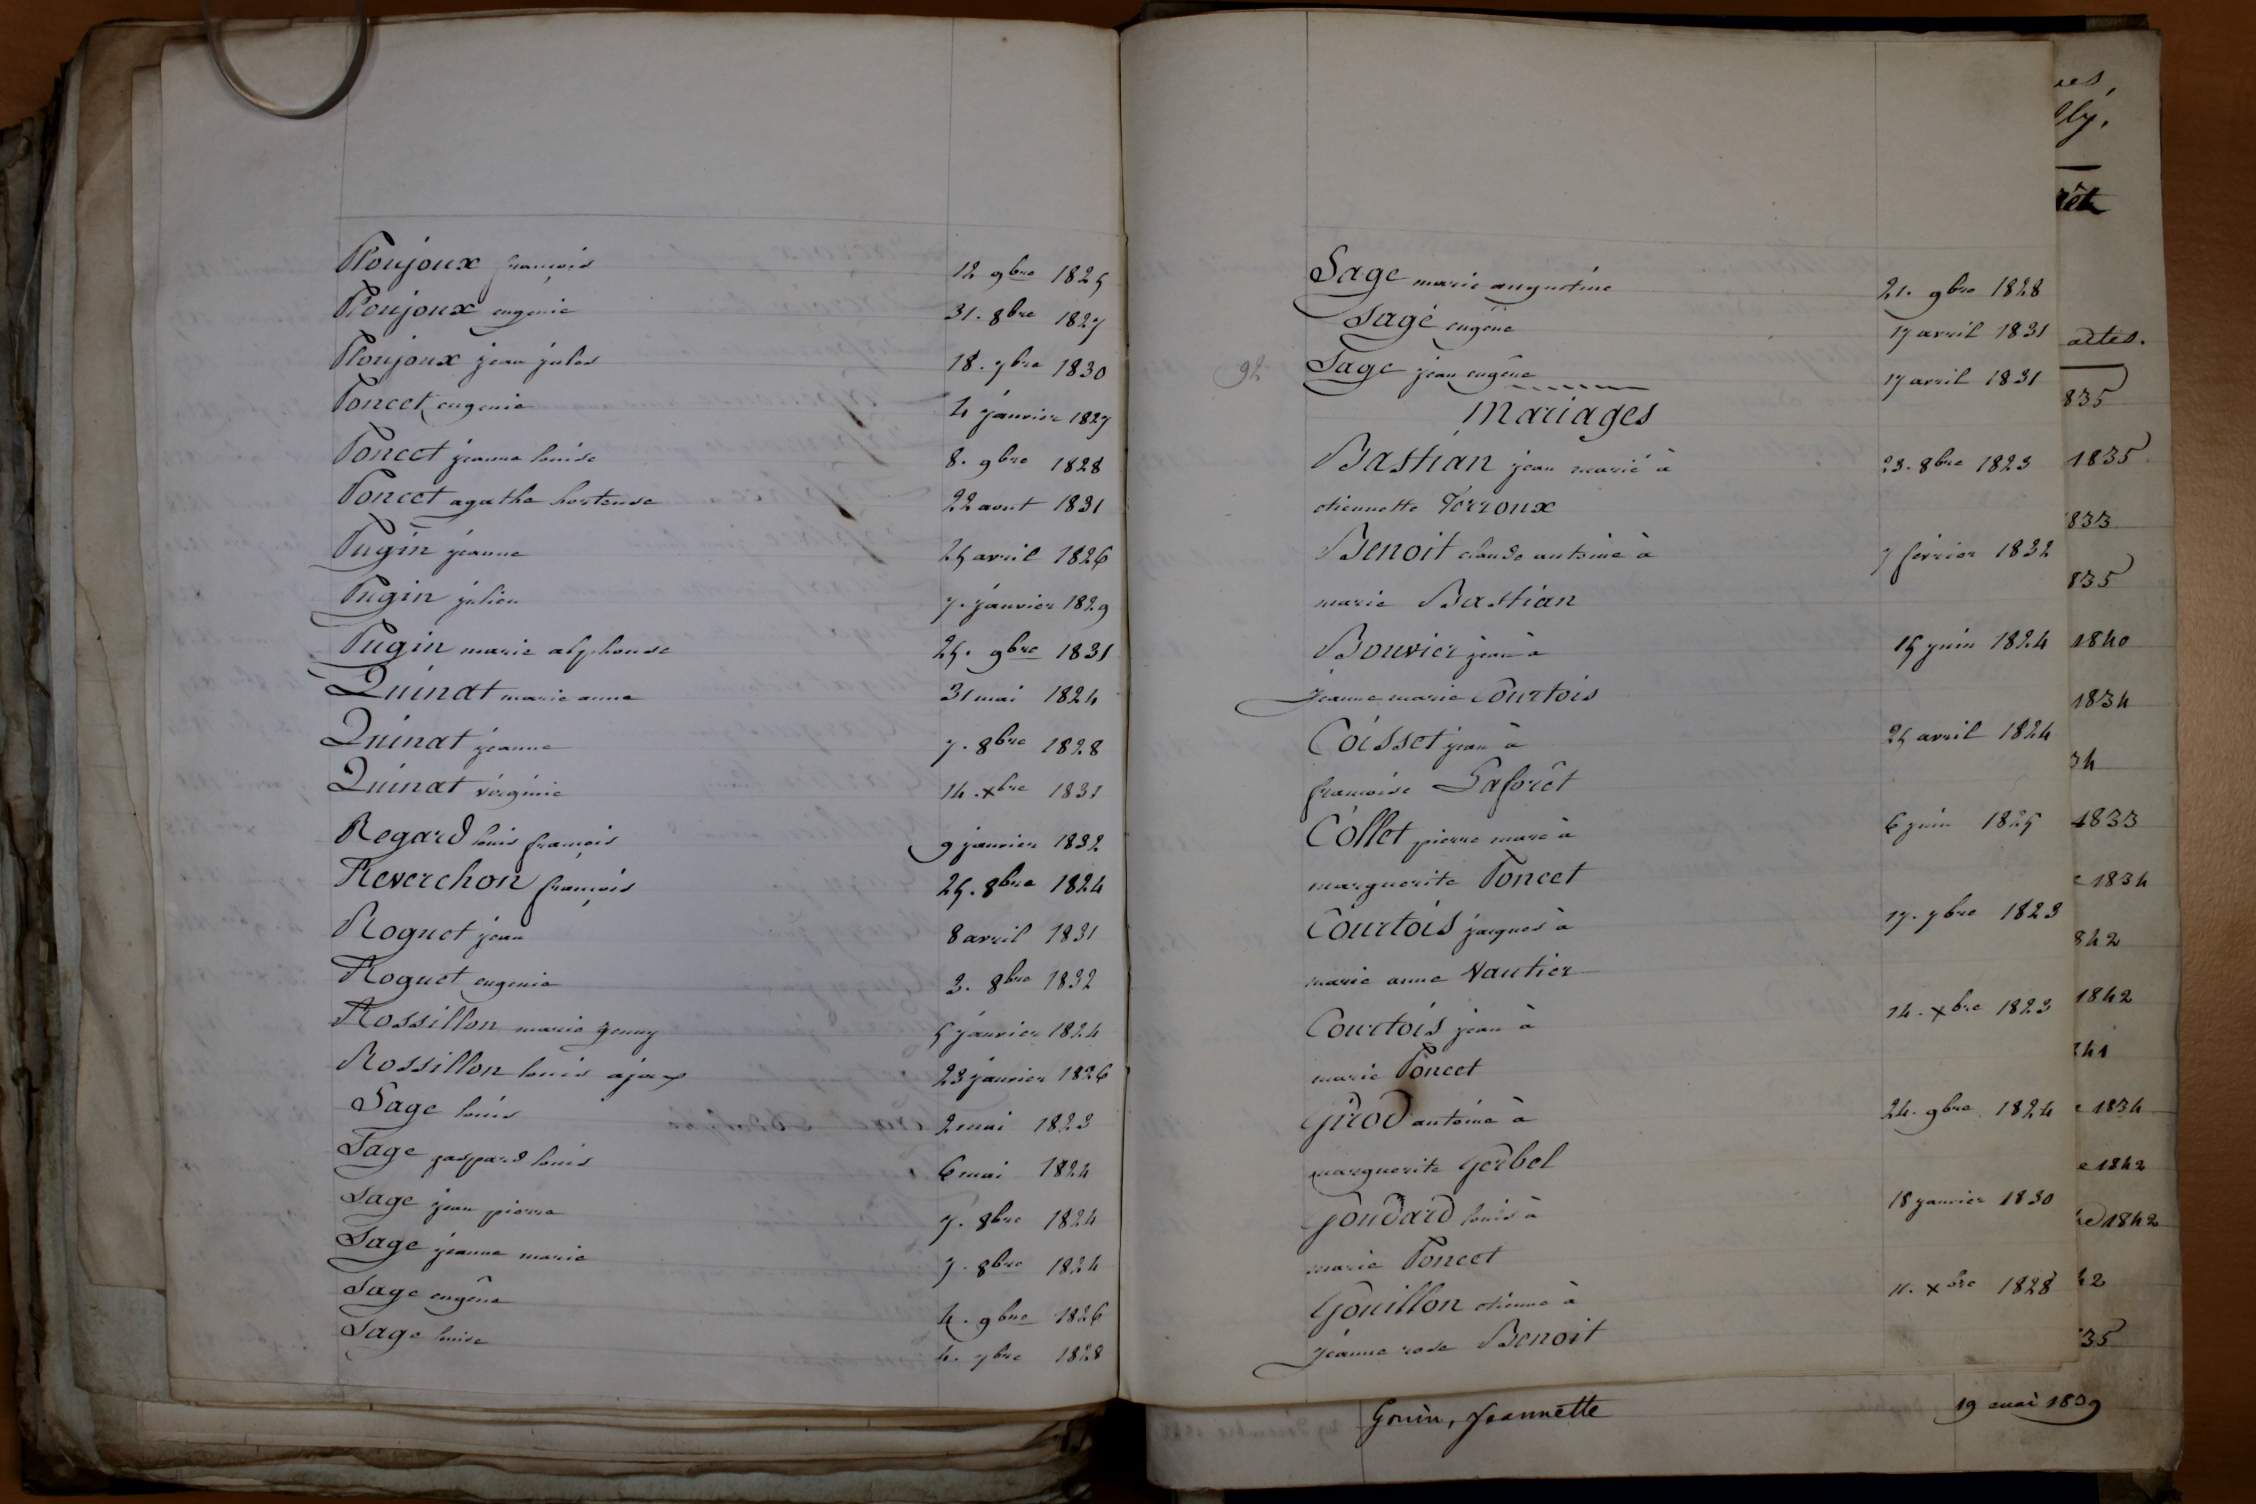 Poujoux françois 12 9bre 1825
Poujoux eugenie 31. 8bre 1827
Poujoux jean jules 18. 7bre 1830
Poncet eugenie 4 janvier 1827
Poncet jeanne louise 8. 9bre 1828
Poncet agathe hortense 22 aout 1831
Pugin jeanne 25 avril 1826
Pugin julien 7. janvier 1829
Pugin marie alphonse 25. 9bre 1831
Quinat marie anne 31 mai 1824
Quinat jeanne 7. 8bre 1828
Quinat virginie 14. xbre 1831
Regard louis françois 9 janvier 1832
Reverchon françois 25. 8bre 1824
Roguet jean 8 avril 1831
Roguet eugenie 3. 8bre 1832
Rossillon marie jenny 5 janvier 1824
Rossillon louis ajax 23 janvier 1826
Sage louis 2 mai 1823
Sage gaspard louis 6 mai 1824
Sage jean pierre 7. 8bre 1824
Sage jeanne marie 7. 8bre 1824
Sage eugêne 4. 9bre 1826
Sage louise 4. 7bre 1828
Sage marie augustine 21. 9bre 1828
Sage eugêne 17 avril 1831
92 Sage jean eugêne 17 avril 1831
Mariages
Bastian jean marie à 23. 8bre 1823
etiennette Terroux
Benoit claude antoine à 7 février 1832
marie Bastian
Bouvier jean à 15 juin 1824
jeanne marie Courtois
Coisset jean à 25 avril 1824
françoise Laforêt
Collet pierre marc à 6 juin 1825
marguerite Poncet
Courtois jacques à 17. 7bre 1823
marie anne Vautier
Courtois jean à 14. xbre 1823
marie Poncet
Girod antoine à 24. 9bre 1824
marguerite Gerbel
Goudard louis à 18 janvier 1830
marie Poncet
Gouillon etienne à 11. xbre 1828
jeanne rose Benoit
Gouin, Jeannette 19 mai 1839
actes.
835
1835
833
835
1840
1834
34
1833
e 1834
842
1842
841
e 1834
e 1842
1842
42
35